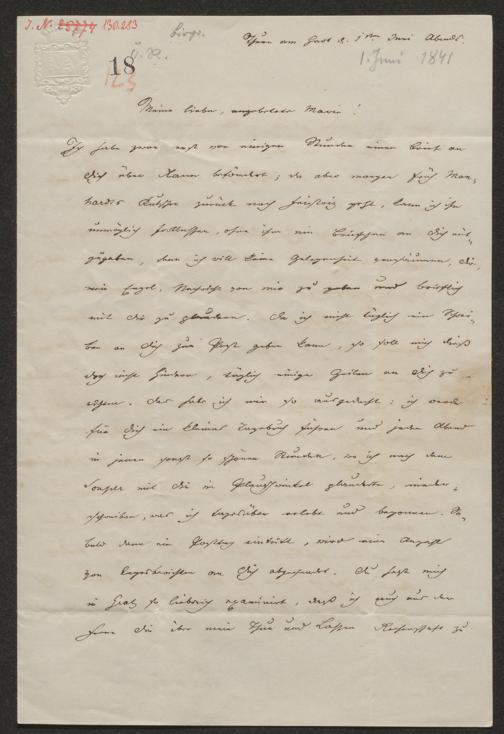 I. N. 25774 130.213 biogr.
Thurn am Hart d. 1ten Juni Abends.
18 1. Juni 1841
123
Meine liebe, angebetete Marie!
Ich habe zwar erst vor einigen Stunden einen Brief an
Dich über befördert; da aber morgen früh
Kutscher zurück nach Feistritz geht, kann ich ihn
unmöglich fortlassen, ohne ihm ein Briefchen an Dich mit-
zugeben, denn ich will keine Gelegenheit versäumen, Dir,
mein Engel, Nachricht von mir zu geben und brieflich
mit Dir zu plaudern. Da ich nicht täglich ein Schrei-
ben an Dich zur Post geben kann, so soll mich dieß
doch nicht hindern, täglich einige Zeilen an Dich zu
richten. Das habe ich mir so ausgedacht: ich werde
für Dich ein kleines Tagebuch führen und jeden Abend
in jenen sonst so schönen Stunden, wo ich nach dem
Souper mit Dir im Plauschwinkel plauderte, nieder-
schreiben, was ich tagsüber erlebt und begonnen. So-
bald dann ein Posttag eintritt, wird eine Anzahl
von Tagesberichten an Dich abgesendet. Du hast mich
in Gratz so liebreich examinirt, daß ich auch aus der
Ferne Dir über mein Thun und Lassen Rechenschaft zu